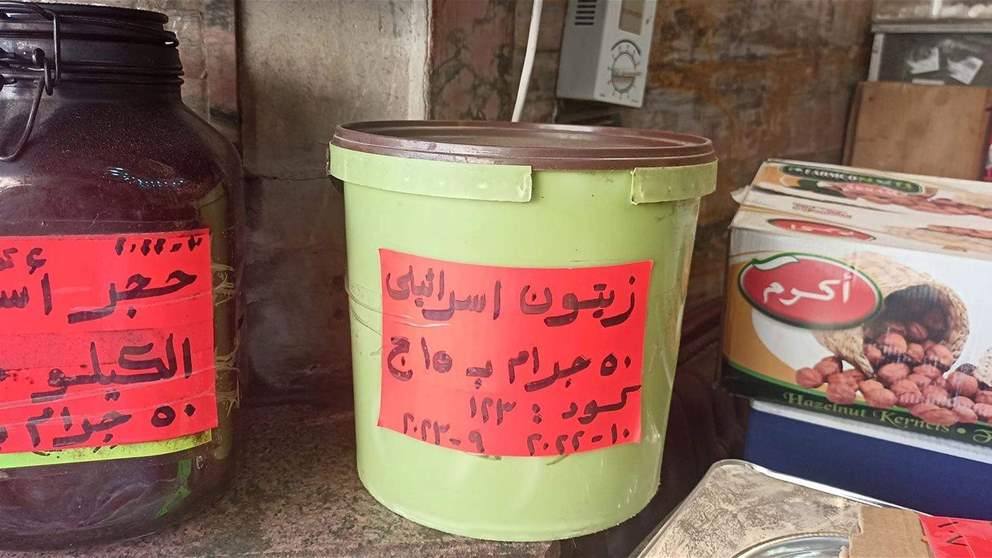 ٢٠٢٢-٢
حجر أس
الكيلو
٥٠ جرام
زيتون اسرائيلى
٥٠ جرام ب ١٥ ج
كود : ١٢٣
٢٠٢٢-١٠
٢٠٢٣-٩
أكرم
Hazelnut Kernels